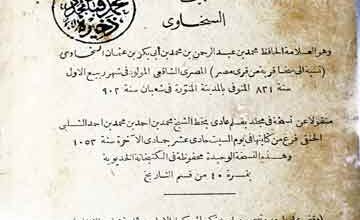 السخاوى
وهو العلامة الحافظ محمد بن عبد الرحمن بن محمد بن أبى بكر بن عثمان السخاوى
(نسبة الى سخا قرية من قرى مصر) المصرى الشافعى المولود فى شهر ربيع الاول
سنة ٨٣١ المتوفى بالمدينة المنورة فى شعبان سنة ٩٠٢
منقولا عن نسخة فى مجلد بقلم عادى بخط الشيخ محمد بن احمد بن محمد بن احمد الشلبى
الحنفى فرغ من كتابتها فى يوم السبت حادى عشر جمادى الآخرة سنة ١٠٥٣
وهذه النسخة الوحيدة محفوظة فى الكتبخانة الخديوية
بنمرة ٤٠ من قسم التاريخ